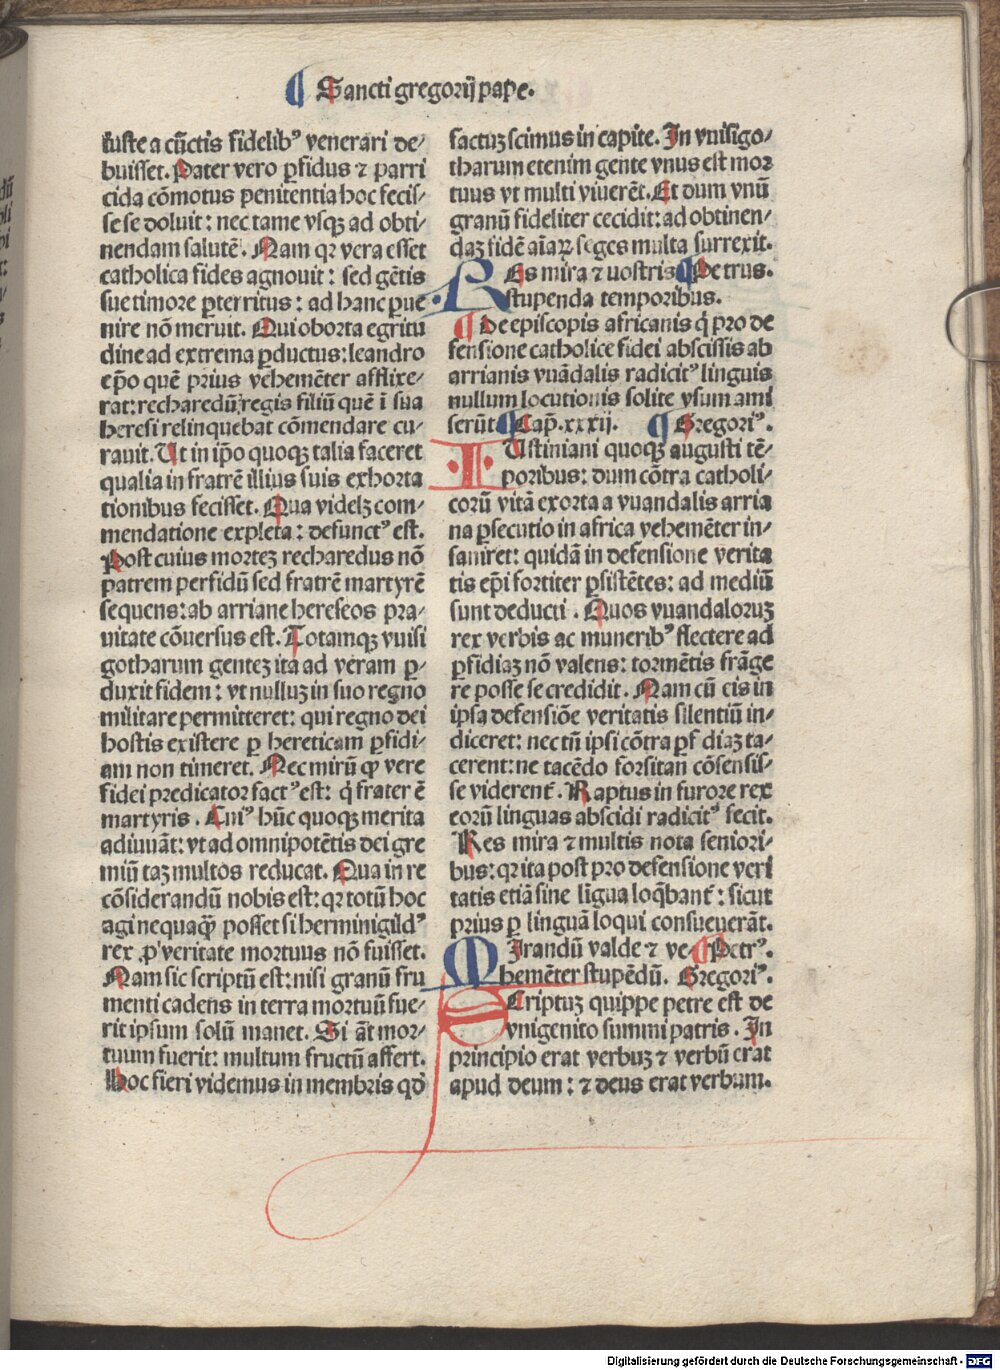 ¶ Sancti gregorij pape.
iuste a cūctis fidelibꝰ venerari de⸗
buisset. Pater vero ꝑfidus ⁊ parri
cida cōmotus penitentia hoc fecis⸗
se se doluit: nec tame vsqꝫ ad obti⸗
nendam salutē. Nam qꝛ vera esset
catholica fides agnouit: sed gētis
sue timore ꝑterritus: ad hanc ꝑue⸗
nire nō meruit. Qui oborta egritu
dine ad extrema ꝑductus: leandro
ep̄o quē prius vehemēter afflixe⸗
rat: recharedū regis filiū quē ī sua
heresi relinquebat cōmendare cu⸗
rauit. Ut in ip̄o quoqꝫ talia faceret
qualia in fratrē illius suis exhorta
tionibus fecisset. Qua videlꝫ com⸗
mendatione expleta: defunctꝰ est.
Post cuius morteꝫ recharedus nō
patrem perfidū sed fratrē martyrē
sequens: ab arriane hereseos pra⸗
uitate cōuersus est. Totamqꝫ vuisi
gotharum genteꝫ ita ad veram ꝑ⸗
duxit fidem: vt nulluꝫ in suo regno
militare permitteret: qui regno dei
hostis existere ꝑ hereticam ꝑfidi⸗
am non timeret. Nec mirū ꝙ vere
fidei predicator factꝰ est: q̇ frater ē
martyris. Cuiꝰ hūc quoqꝫ merita
adiuuāt: vt ad omnipotētis dei gre
miū taꝫ multos reducat. Qua in re
cōsiderandū nobis est: qꝛ totū hoc
agi nequaꝙ̄ posset si herminigildꝰ
rex ꝓ veritate mortuus nō fuisset.
Nam sic scriptū est: nisi granū fru
menti cadens in terra mortuū fue⸗
rit ipsum solū manet. Si āt mor⸗
tuum fuerit: multum fructū affert.
Hoc fieri videmus in membris qđ
factuꝫ scimus in capite. In vuisigo⸗
tharum etenim gente vnus est mor
tuus vt multi viuerēt. Et dum vnū
granū fideliter cecidit: ad obtinen⸗
daꝫ fidē aīaꝝ seges multa surrexit.
REs mira ⁊ nostris ¶ Petrus.
stupenda temporibus.
¶ De episcopis africanis q̇ pro de
fensione catholice fidei abscissis ab
arrianis vuādalis radicitꝰ linguis
nullum locutionis solite vsum ami
serūt ¶ Cap̄. xxxij. ¶ Gregoriꝰ.
IUstiniani quoqꝫ augusti tē⸗
poribus: dum cōtra catholi⸗
corū vitā exorta a vuandalis arria
na ꝑsecutio in africa vehemēter in⸗
saniret: quidā in defensione verita
tis ep̄i fortiter ꝑsistētes: ad mediū
sunt deducti. Quos vuandaloruꝫ
rex verbis ac muneribꝰ flectere ad
ꝑfidiaꝫ nō valens: tormētis frāge
re posse se credidit. Nam cū eis in
ipsa defensiōe veritatis silentiū in⸗
diceret: nec tū ipsi cōtra ꝑfidiaꝫ ta⸗
cerent: ne tacēdo forsitan cōsensis⸗
se viderent̄. Raptus in furore rex
eorū linguas abscidi radicitꝰ fecit.
Res mira ⁊ multis nota seniori⸗
bus: qꝛ ita post pro defensione veri
tatis etiā sine līgua loq̄bant̄: sicut
prius ꝑ linguā loqui consueuerāt.
MIrandū valde ⁊ ve ¶ Petrꝰ.
hemēter stupēdū. Gregoriꝰ.
SCriptuꝫ quippe petre est de
vnigenito summi patris. In
principio erat verbuꝫ ⁊ verbū erat
apud deum: ⁊ deus erat verbum.
Digitalisierung gefördert durch die Deutsche Forschungsgemeinschaft - DFG